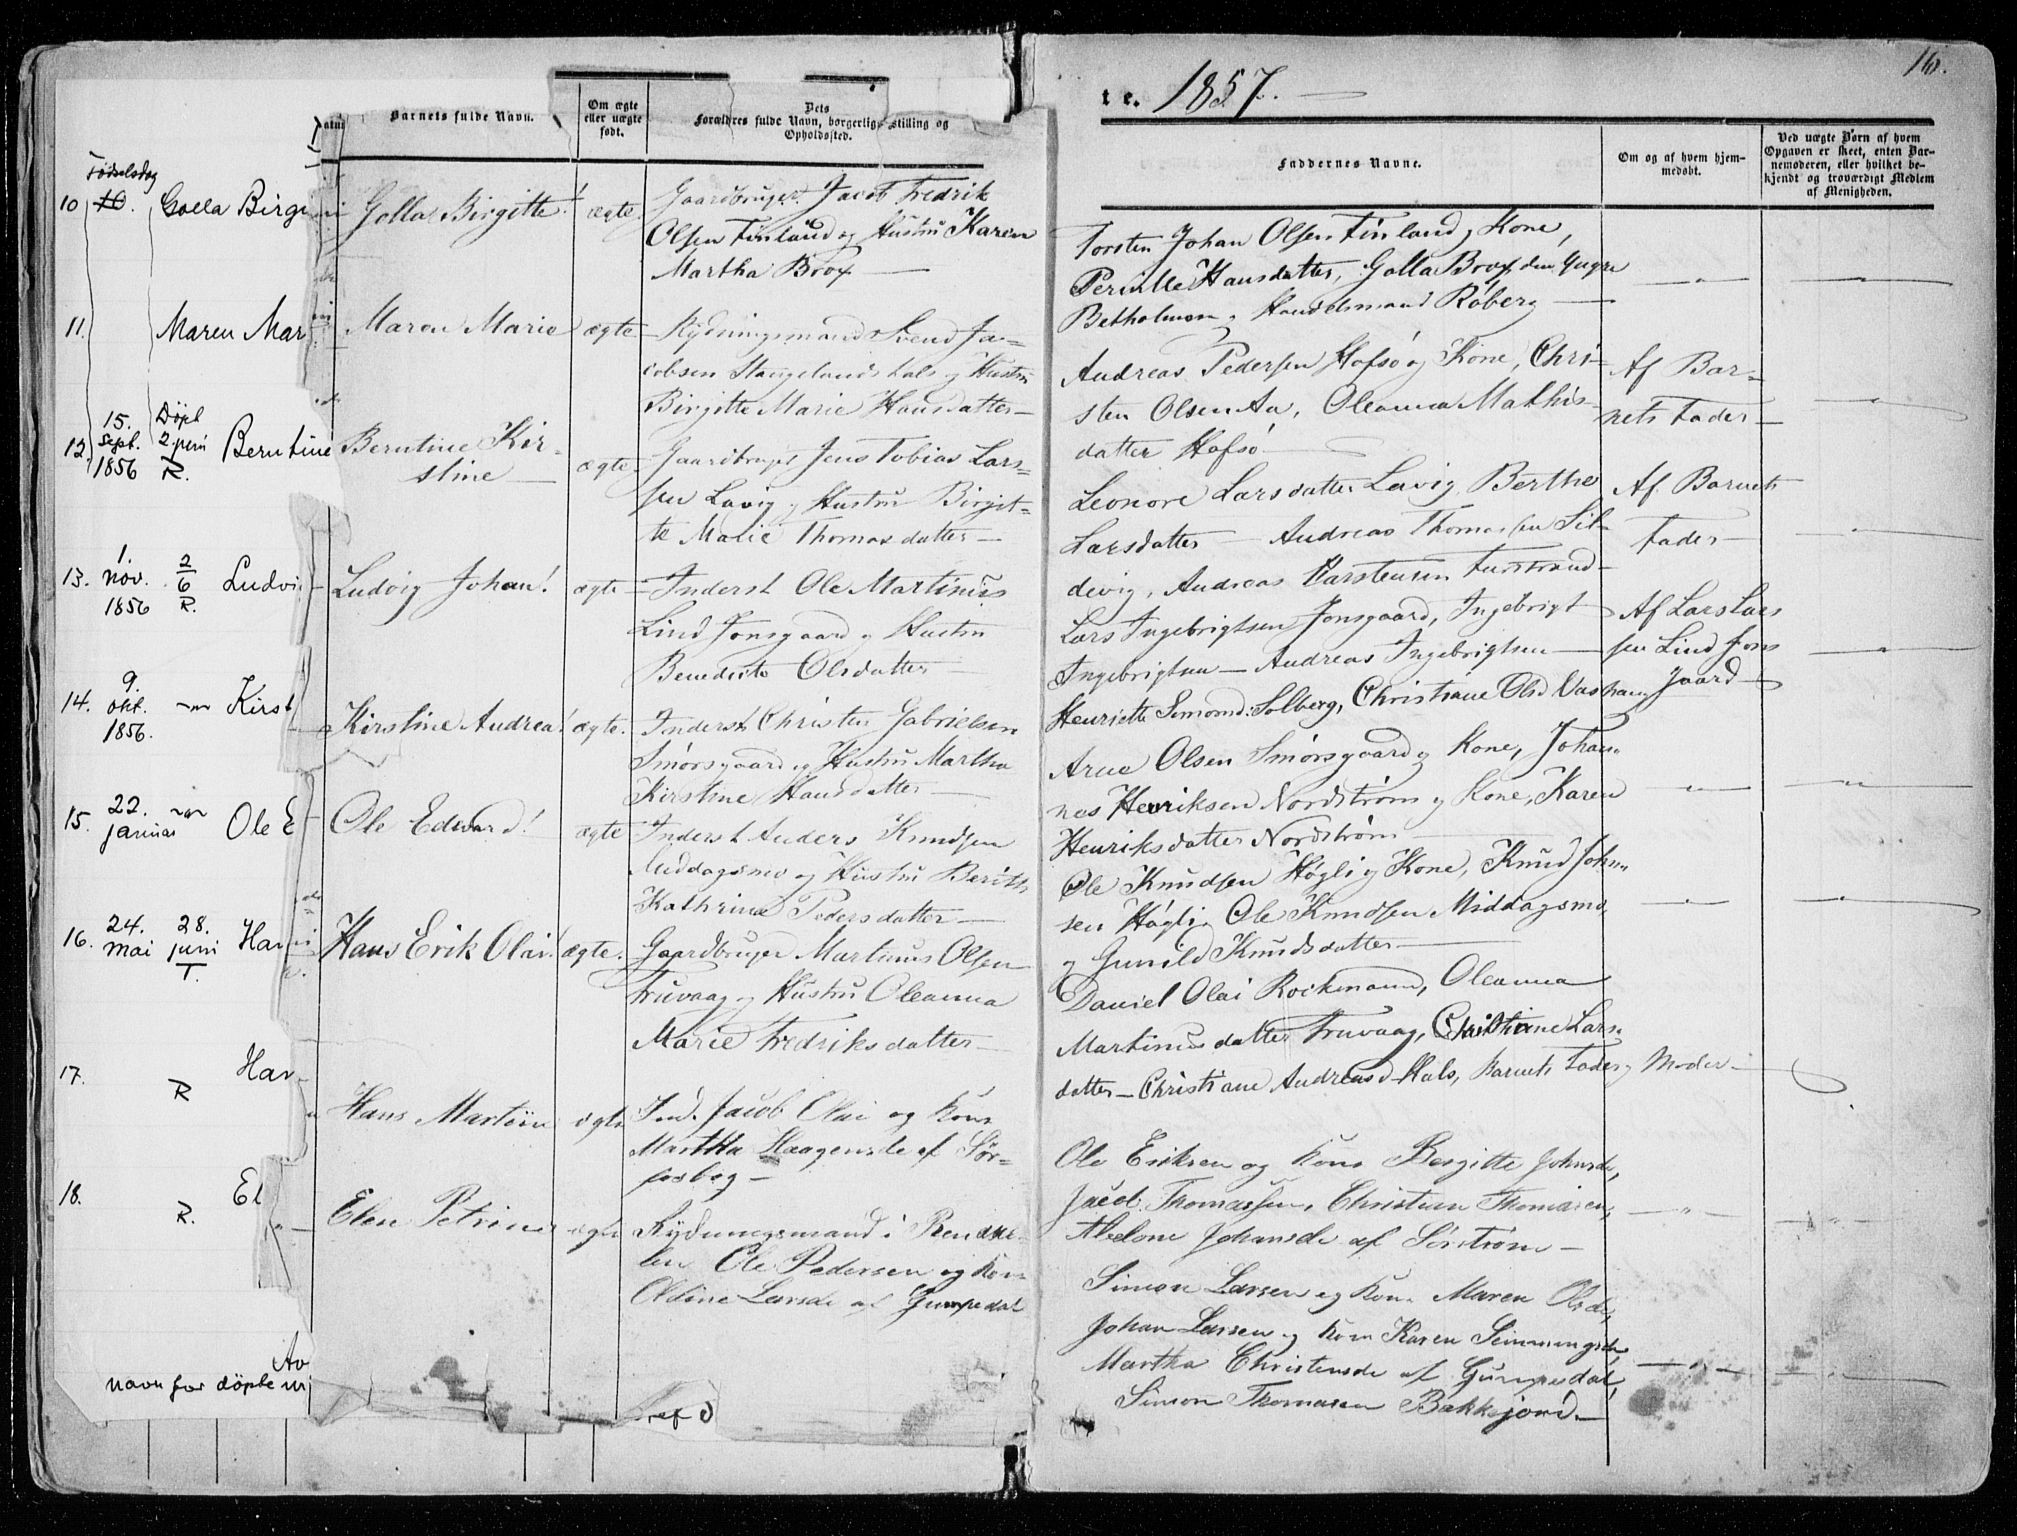 16.
te. 1857.
Barnets fulde Navn.
Om ægte eller uægte født.
Dets Forældres fulde Navn, borgerlige Stilling og Opholdssted.
Faddernes Navne.
Om og af hvem hjemmedøbt.
Ved uægte Børn af hvem Opgaven er skeet, enten Barnemoderen, eller hvilket bekjendt og troværdigt Medlem af Menigheden.
Fødselsdag
10 10. Golla Birgi
Golla Birgitte! ægte
Gaardbruger Jacob Fredrik
Olsen Finland og Hustru Karen
Martha Brox
Torsten Johan Olsen Finland og Kone,
Pernille Hansdatter, Golla Brox den yngre
Betholmen og Handelsmand Roberg
11. Maren Mar
Maren Marie ægte
Rydningsmand Svend Ja-
cobsen Stangelandshals og Hustru
Birgitte Marie Hansdatter
Andreas Pedersen Hofsø og Kone, Chri-
sten Olsen Aa, Oleanna Mathis-
datter Hofsø
Af Bar-
nets Fader
12. 15. Sept. 1856 Døpt 2. juni R. Berntine
Berntine Kir-
stine ægte
Gaardbruger Jens Tobias Lars-
sen Lavig og Hustru Birgit-
te Malie Thomasdatter
Leonore Larsdatter Lavig, Berthe
Larsdatter Andreas Thomassen Sil-
devig, Andreas Karstensen Furstrand
Af Barnets
Fader
13. 1. nov. 1856 2/6 R. Ludvi
Ludvig Johan! ægte
Inderst Ole Martinus
Lind Jonsgaard og Hustru
Benedicte Olsdatter
Lars Ingebrigtsen Jonsgaard, Ingebrigt
Ingebrigtsen Andreas Ingebrigtsen
Henriette Simonsd. Solberg, Christiane Olsd Vashaug
Af Lars Lars
sen Lind Jons
gaard
14. 9. okt. 1856. Kirst
Kirstine Andrea! ægte.
Inderst Christen Gabrielsen
Smørsgaard og Hustru Martha
Kirstine Hansdatter
Arne Olsen Smørsgaard og Kone, Johan-
nes Henriksen Nordstrøm og Kone, Karen
Henriksdatter Nordstrøm
15. 22. januar Ole E
Ole Edvard! ægte
Inderst Anders Knudsen
Middagsmo og Hustru Berith
Kathrine Pedersdatter
Ole Knudsen Høgli og Kone, Knud John-
sen Høgli, Ole Knudsen Middagsmo,
og Gunild Knudsdatter
16. 24. mai 28. juni T. Han
Hans Erik Olai! ægte.
Gaardbruger Martinus Olsen
Truvaag og Hustru Oleanna
Marie Fredriksdatter
Daniel Olai Rockmann, Oleanna
Martinusdatter Truvaag, Christiane Lars-
datter Christiane Andreasd Hals, Barnets Fader og Moder
17. R Han
Hans Martin ægte
Ind. Jacob Olai og Kone
Martha Haagensdr af Sør-
fosbog
Ole Eriksen og Kone Bergitte Johnsdr,
Jacob Thomassen, Christian Thomasen,
Abelone Johansdr af Sørstrøm
18. R. El
Elen Petrine ægte
Rydningsmand i
Ole Pedersen og Kone
Oldine Larsdr af Gumpedal
Simon Larsen og Kone Maren Olsdr,
Johan Larsen og Kone Karen Simmingsdr
Martha Christensdr af Gumpedal,
Simon Thomasen Bakkejord
Av
navn for döpte